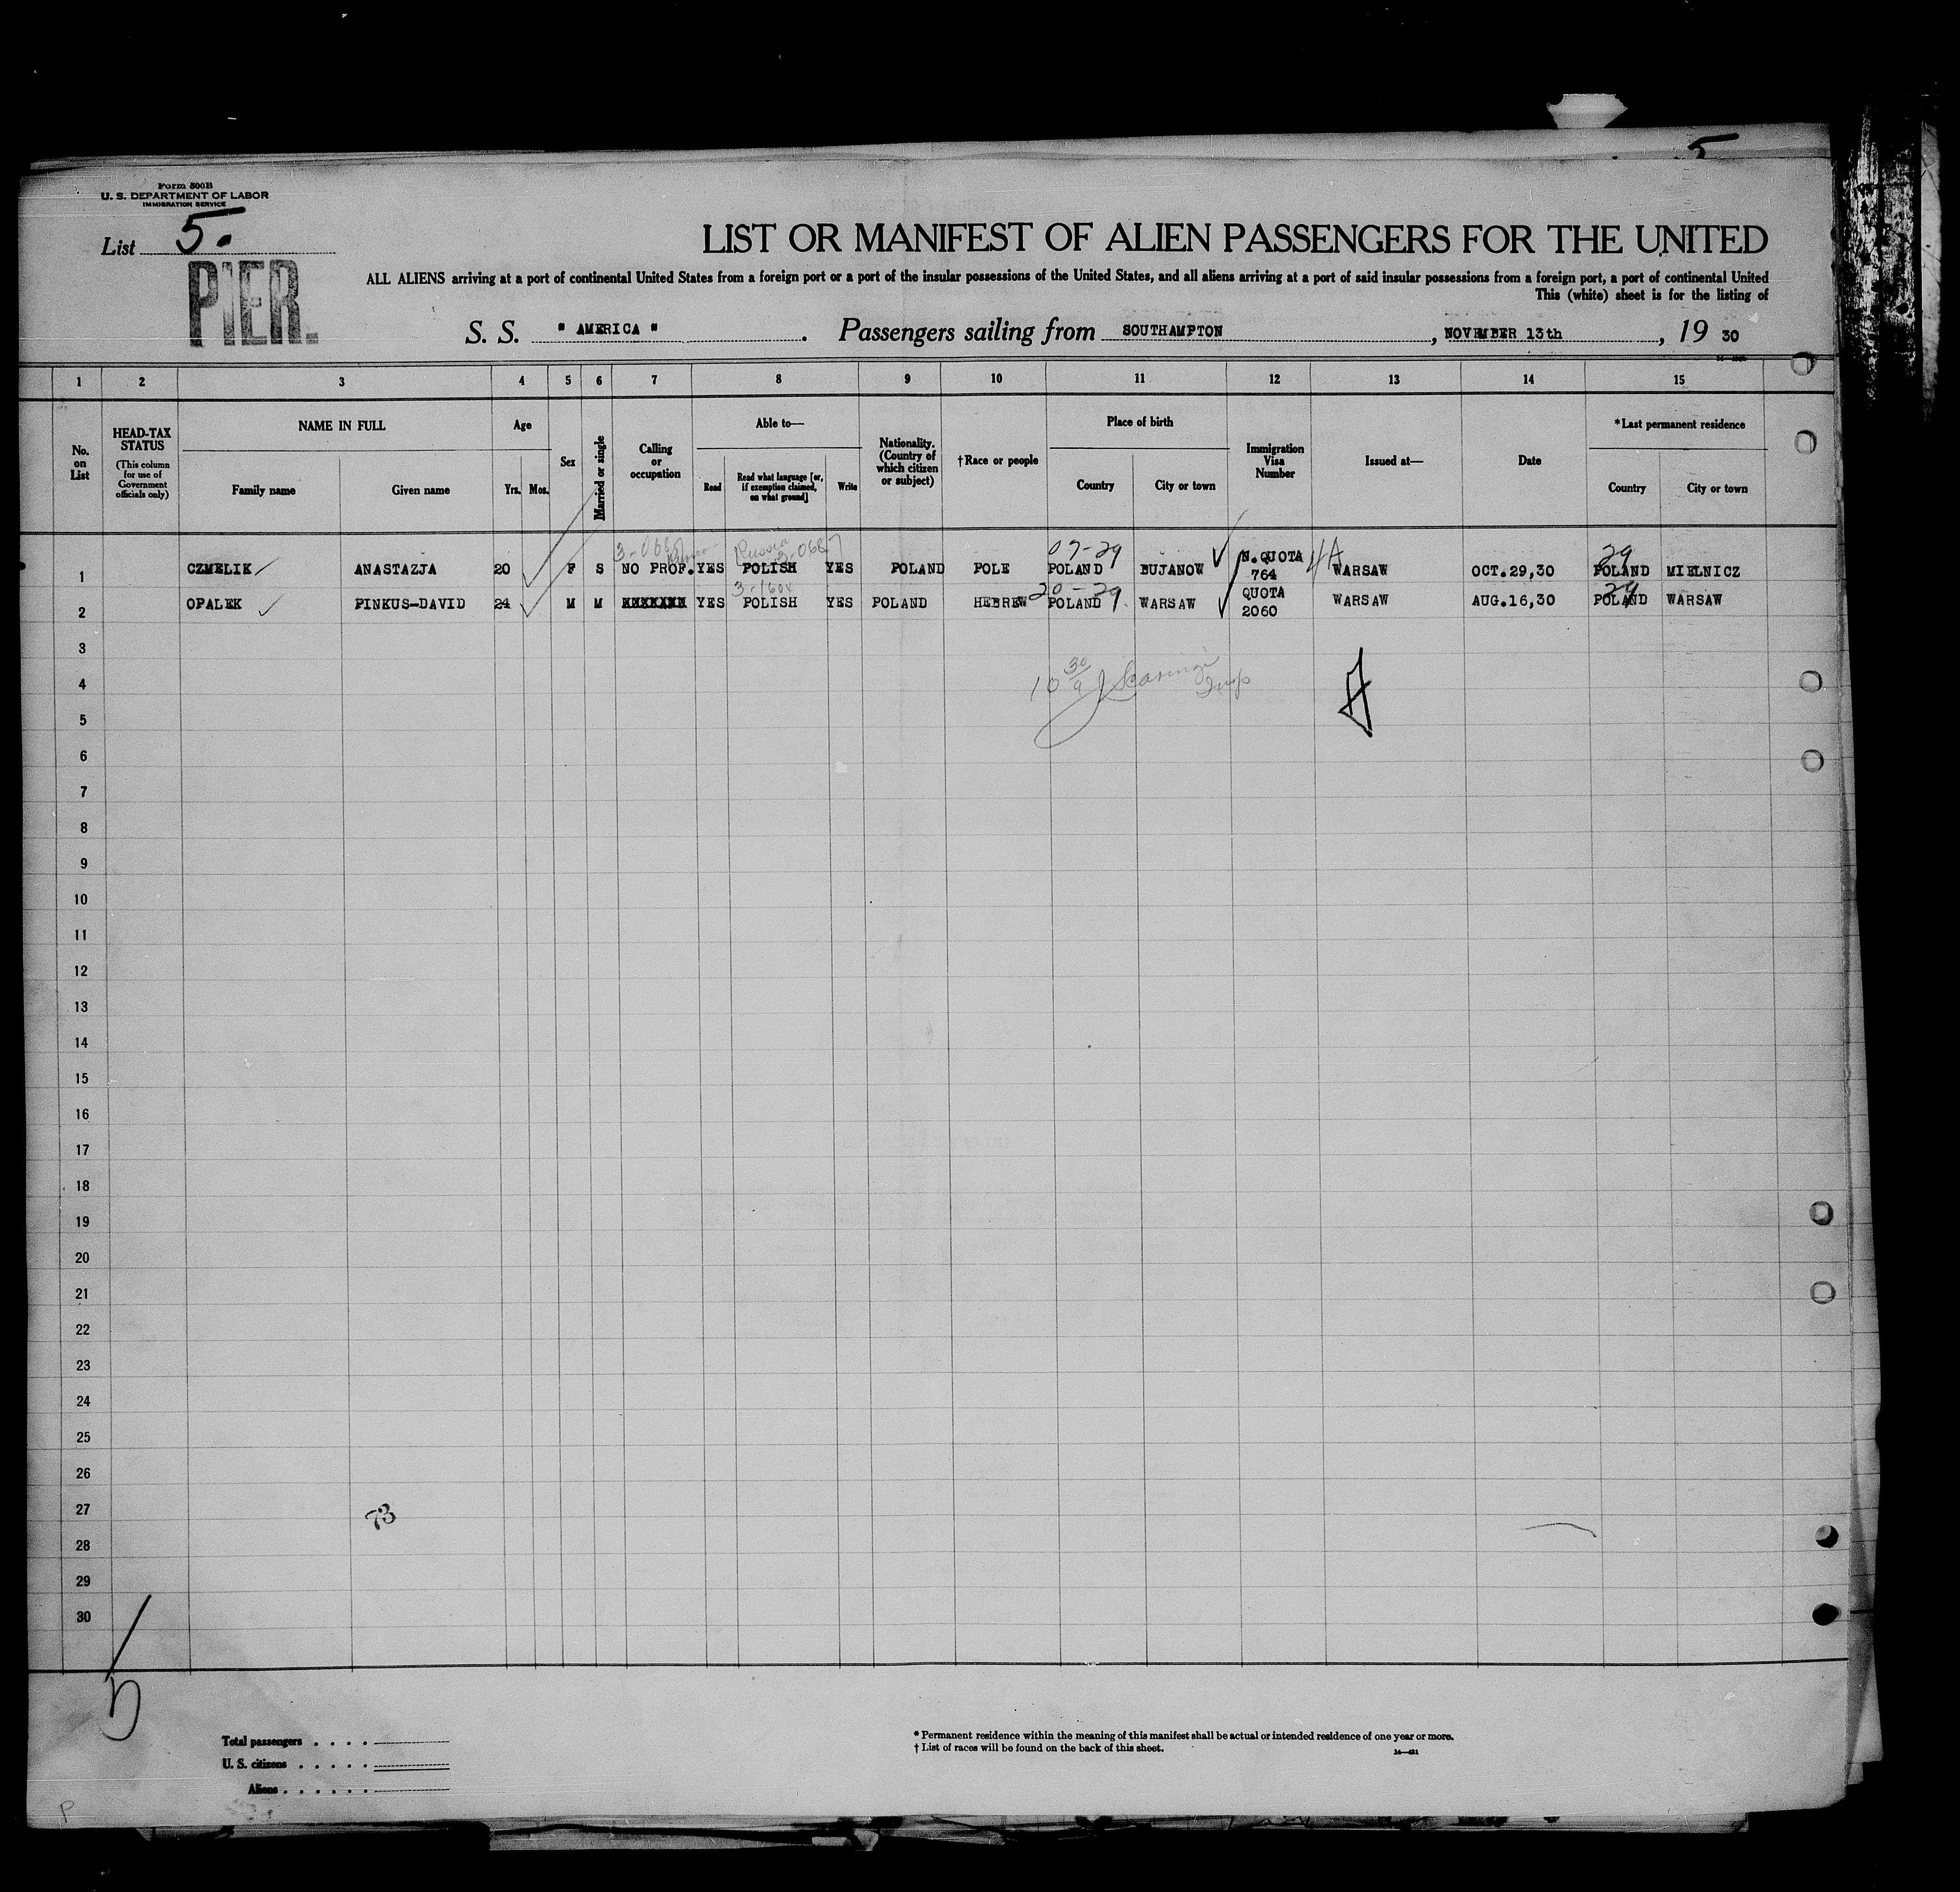 5
Form 500B
U. S. DEPARTMENT OF LABOR
IMMIGRATION SERVICE
List 5.
PIER.
LIST OR MANIFEST OF ALIEN PASSENGERS FOR THE UNITED
ALL ALIENS arriving at a port of continental United States from a foreign port or a port of the insular possessions of the United States, and all aliens arriving at a port of said insular possessions from a foreign port, a port of continental United
This (white) sheet is for the listing of
S. S. " AMERICA ". Passengers sailing from SOUTHAMPTON, NOVEMBER 13th, 19 30
1 2 3 4 5 6 7 8 9 10 11 12 13 14 15
No. on List
HEAD-TAX STATUS
(This column for use of Government officials only)
NAME IN FULL
Family name Given name
Age
Yrs. Mos.
Sex
Married or single
Calling or occupation
Able to—
Read
Read what language [or, if exemption claimed, on what ground]
Write
Nationality. (Country of which citizen or subject)
†Race or people
Place of birth
Country City or town
Immigration Visa Number
Issued at—
Date
*Last permanent residence
Country City or town
3-068 Russia 2-0687 07-29 4A 29
1 CZMELIK ANASTAZJA 20 F S NO PROF. YES POLISH YES POLAND POLE POLAND BUJANOW N.QUOTA 764 WARSAW OCT.29,30 POLAND MIELNICZ
20-29 29
2 OPALEK PINKUS-DAVID 24 M M YES POLISH YES POLAND HEBREW POLAND WARSAW QUOTA 2060 WARSAW AUG.16,30 POLAND WARSAW
3
4
5
6
7
8
9
10
11
12
13
14
15
16
17
18
19
20
21
22
23
24
25
26
27
73
28
29
30
5
Total passengers
U. S. citizens
Aliens
* Permanent residence within the meaning of this manifest shall be actual or intended residence of one year or more.
† List of races will be found on the back of this sheet.
P